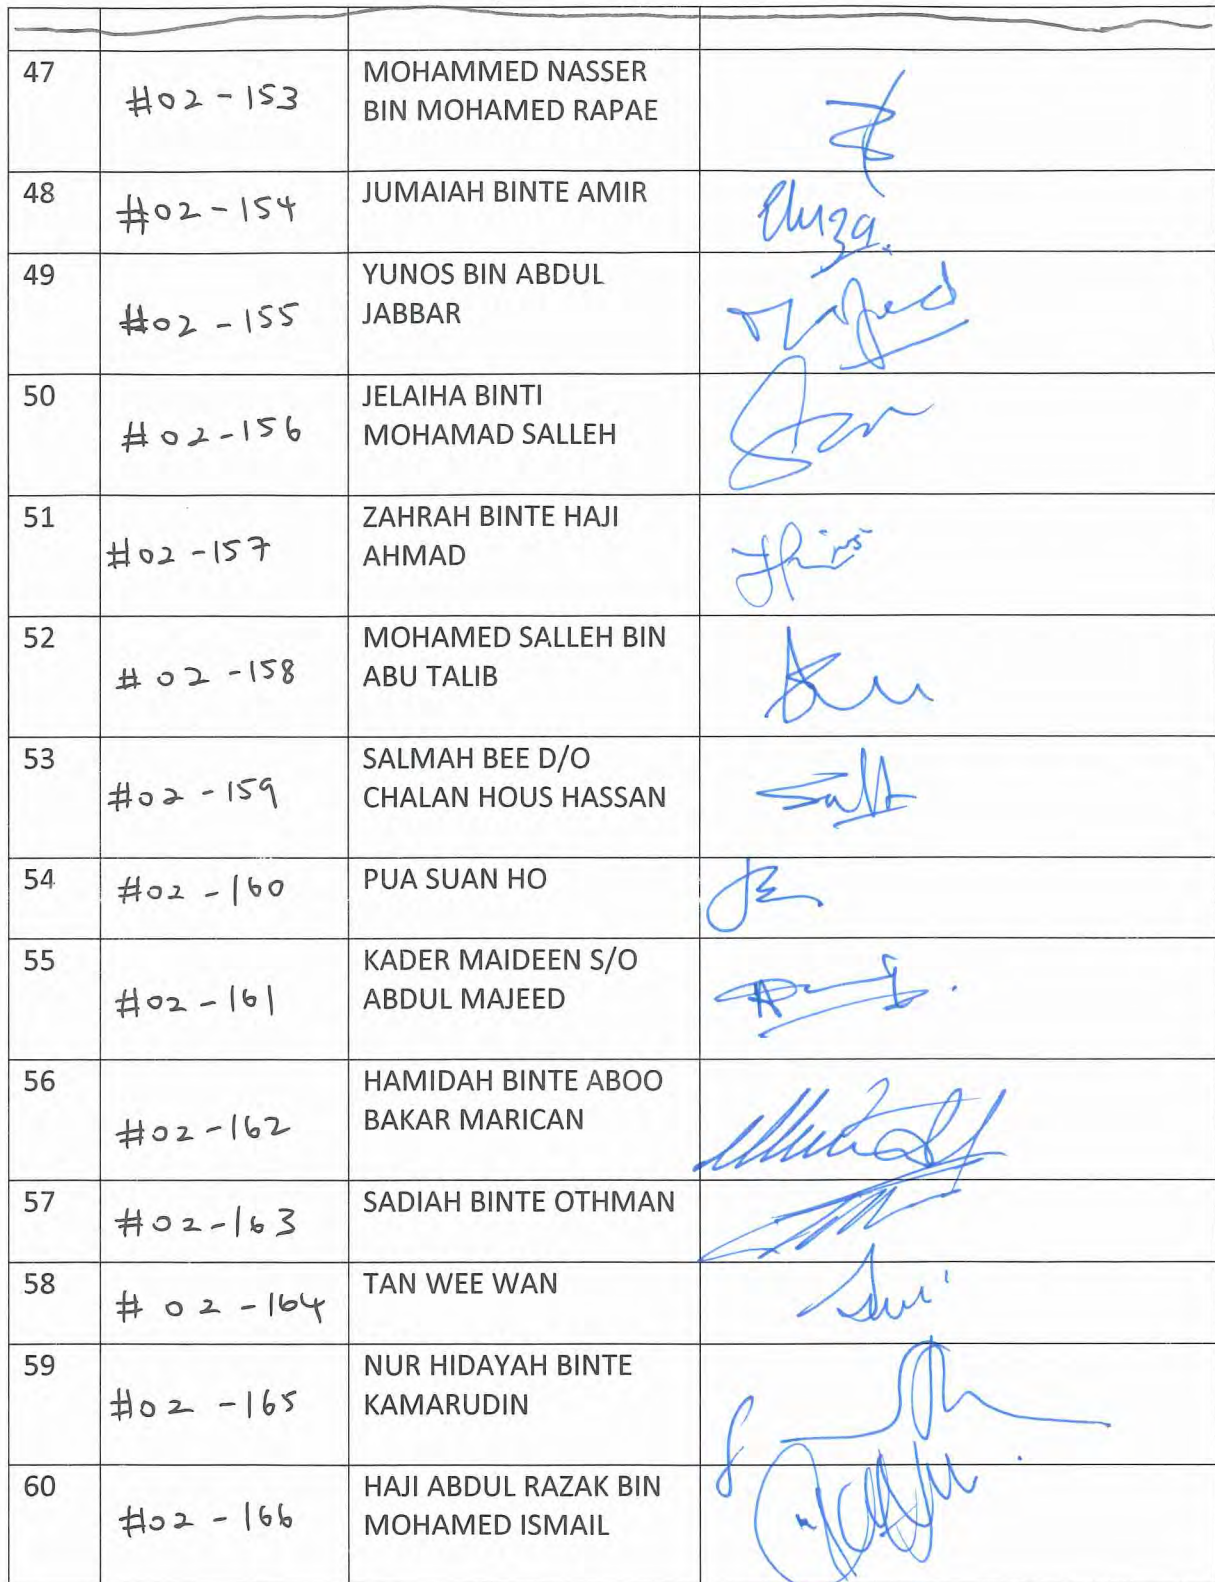 47 #02-153 MOHAMMED NASSER
BIN MOHAMED RAPAE
48 #02-154 JUMAIAH BINTE AMIR
49 #02-155 YUNOS BIN ABDUL
JABBAR
50 #02-156 JELAIHA BINTI
MOHAMAD SALLEH
51 #02-157 ZAHRAH BINTE HAJI
AHMAD
52 #02-158 MOHAMED SALLEH BIN
ABU TALIB
53 #02-159 SALMAH BEE D/O
CHALAN HOUS HASSAN
54 #02-160 PUA SUAN HO
55 #02-161 KADER MAIDEEN S/O
ABDUL MAJEED
56 #02-162 HAMIDAH BINTE ABOO
BAKAR MARICAN
57 #02-163 SADIAH BINTE OTHMAN
58 #02-164 TAN WEE WAN
59 #02-165 NUR HIDAYAH BINTE
KAMARUDIN
60 #02-166 HAJI ABDUL RAZAK BIN
MOHAMED ISMAIL